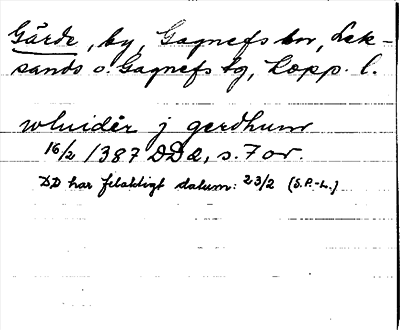 Gärde, by, Gagnefs sn, Lek-
sands o. Gagnefs tg, Kopp. l.
wlwidēr j gerdhum
16/2 1387 DD 2, s. 7 or.
DD har felaktigt datum: 23/2 (S.P.-L.)